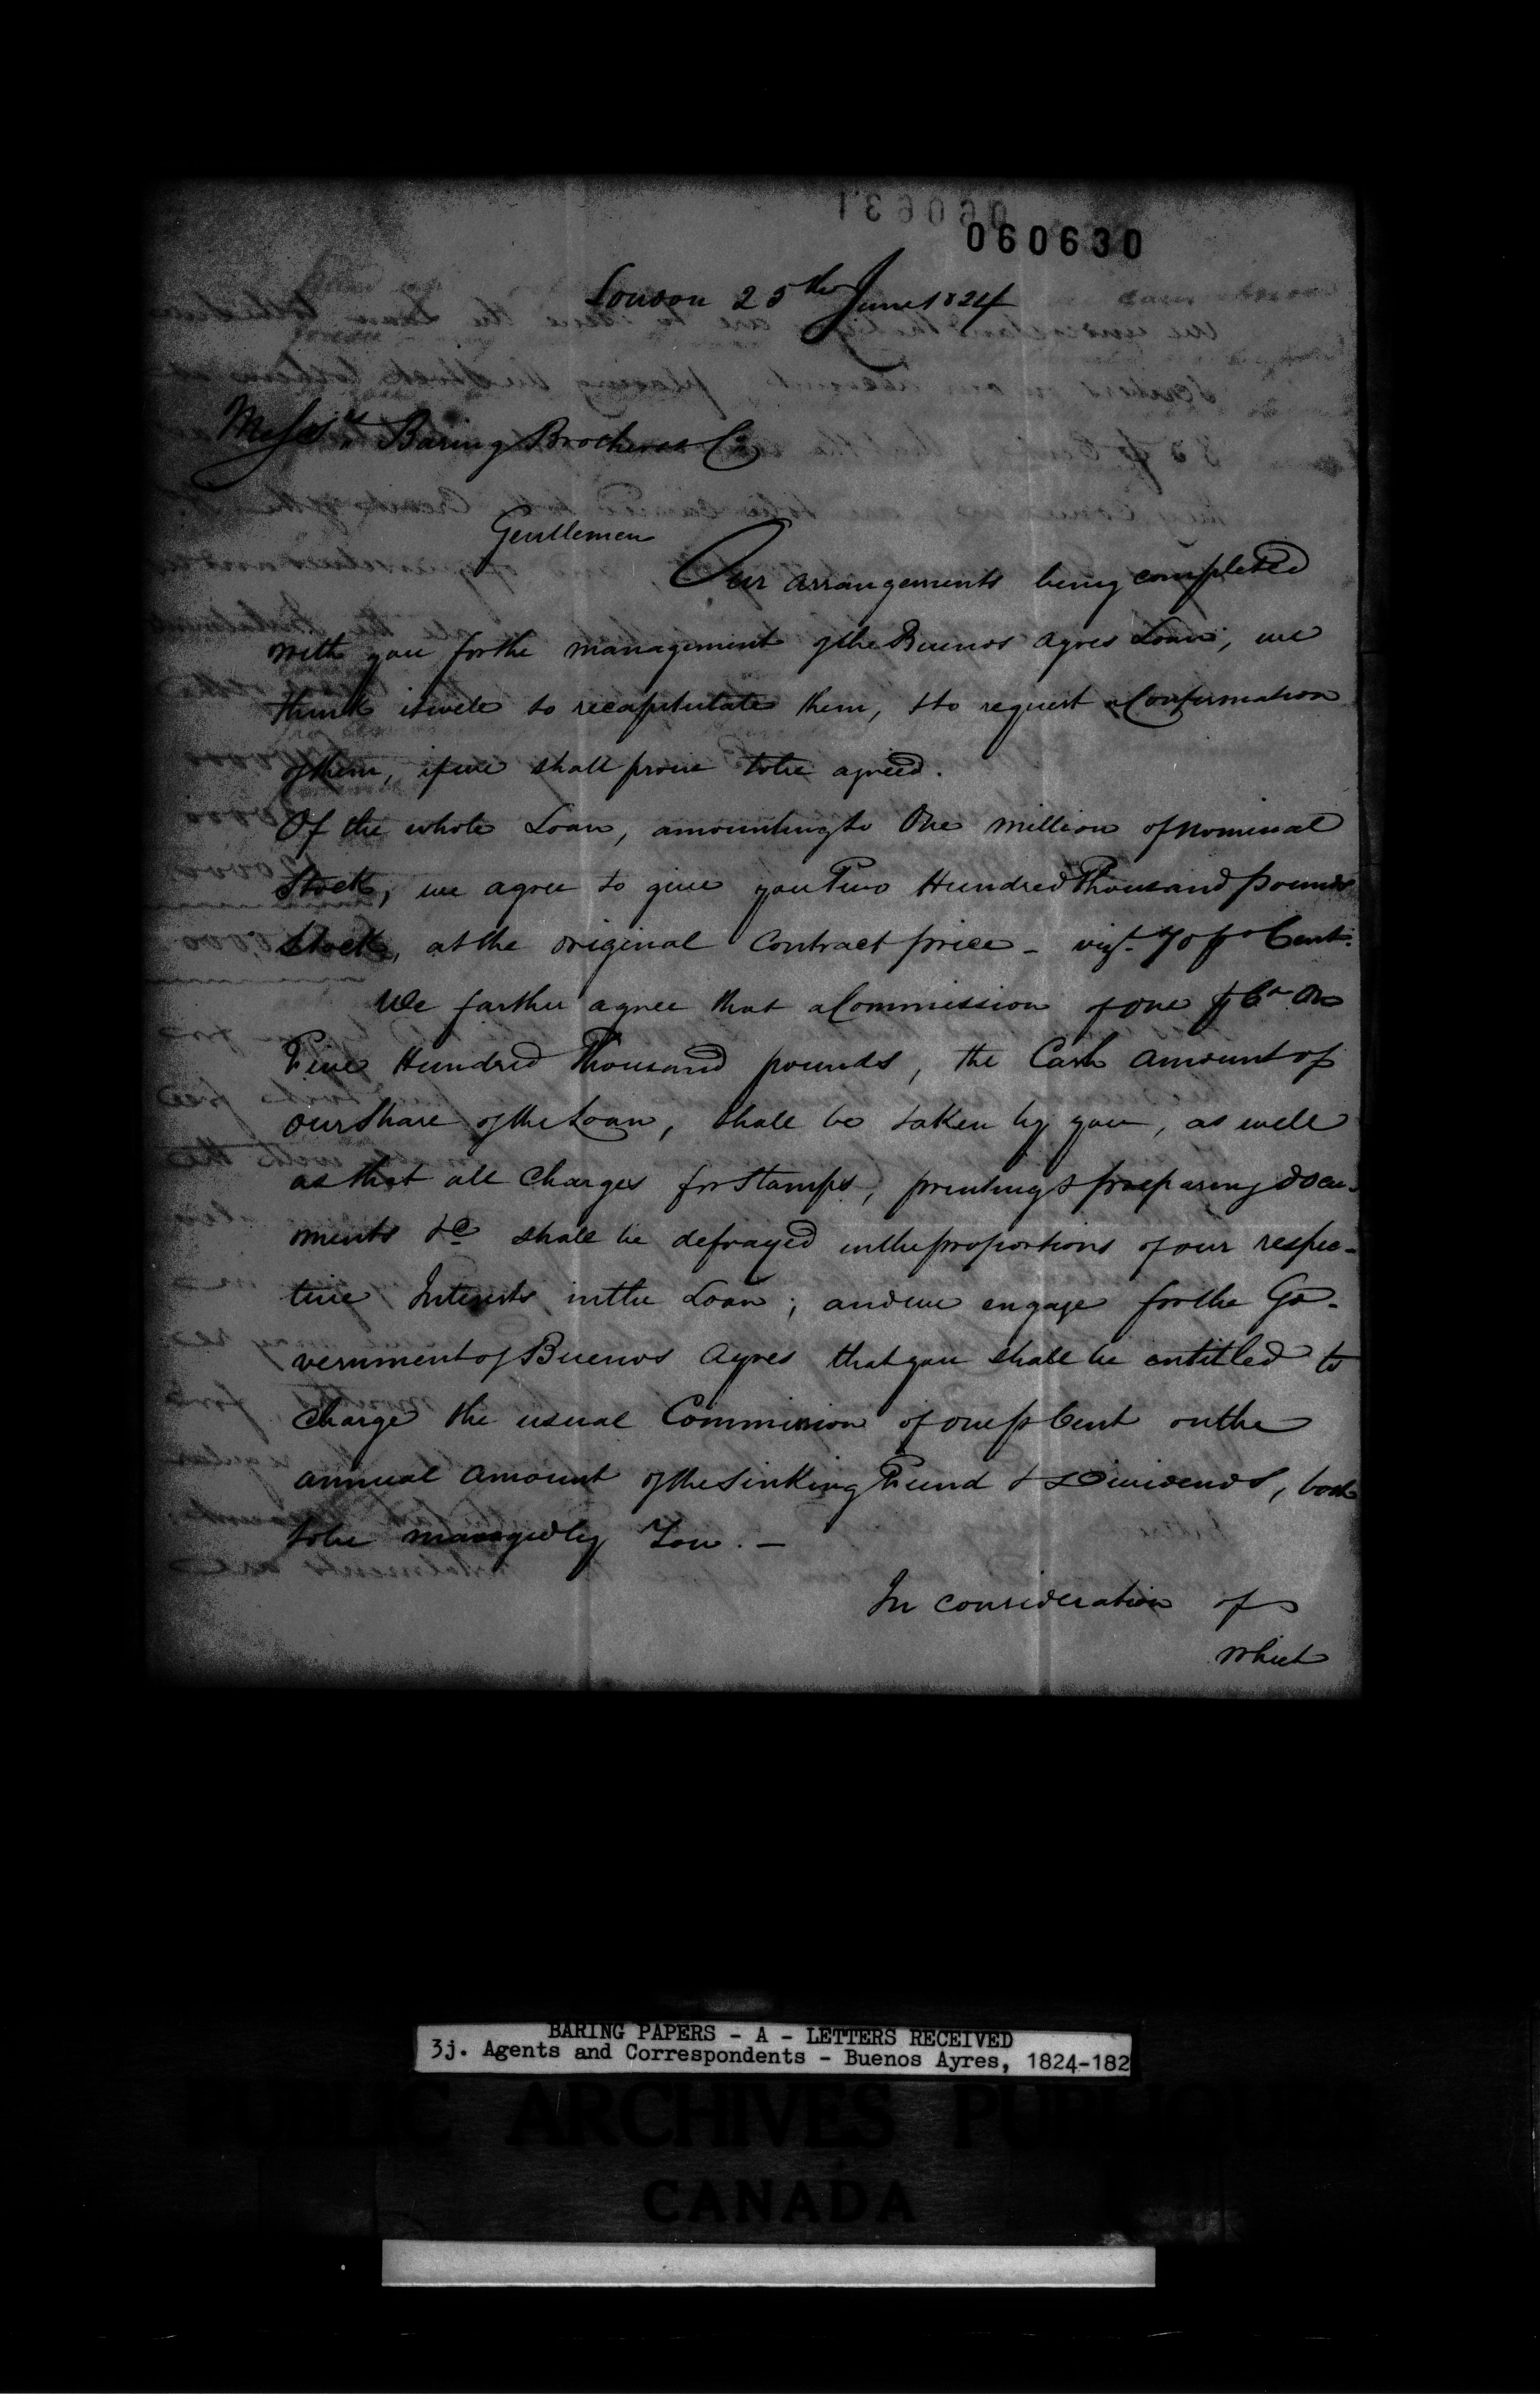 060631
060630
London 25th June 1824
Messrs. Baring Brothers & Co
Gentlemen
Our arrangements being completed
with you for the management of the Buenos Ayres Loan, we
think it well to recapitulate them, & to request a Confirmation
of them, if we shall prove to be agreed.
Of the whole Loan, amounting to One million of nominal
Stock, we agree to give you Two Hundred Thousand pounds
Stock, at the original Contract price – vizt. 70 pr Cent.
We farther agree that a Commission of one p Ct. on
Five Hundred Thousand pounds, the Cash amount of
our Share of the Loan, shall be taken by you, as well
as that all Charges for Stamps, printing & preparing docu-
ments &c shall be defrayed in the proportions of our respec-
tive Interests in the Loan; and we engage for the Go-
vernment of Buenos Ayres that you shall be entitled to
charge the usual Commission of one p Cent on the
annual amount of the Sinking Fund & Dividends, both
to be managed by You. –
In consideration of
which
BARING PAPERS - A - LETTERS RECEIVED
3j. Agents and Correspondents - Buenos Ayres, 1824-182
PUBLIC ARCHIVES PUBLIQUES
CANADA